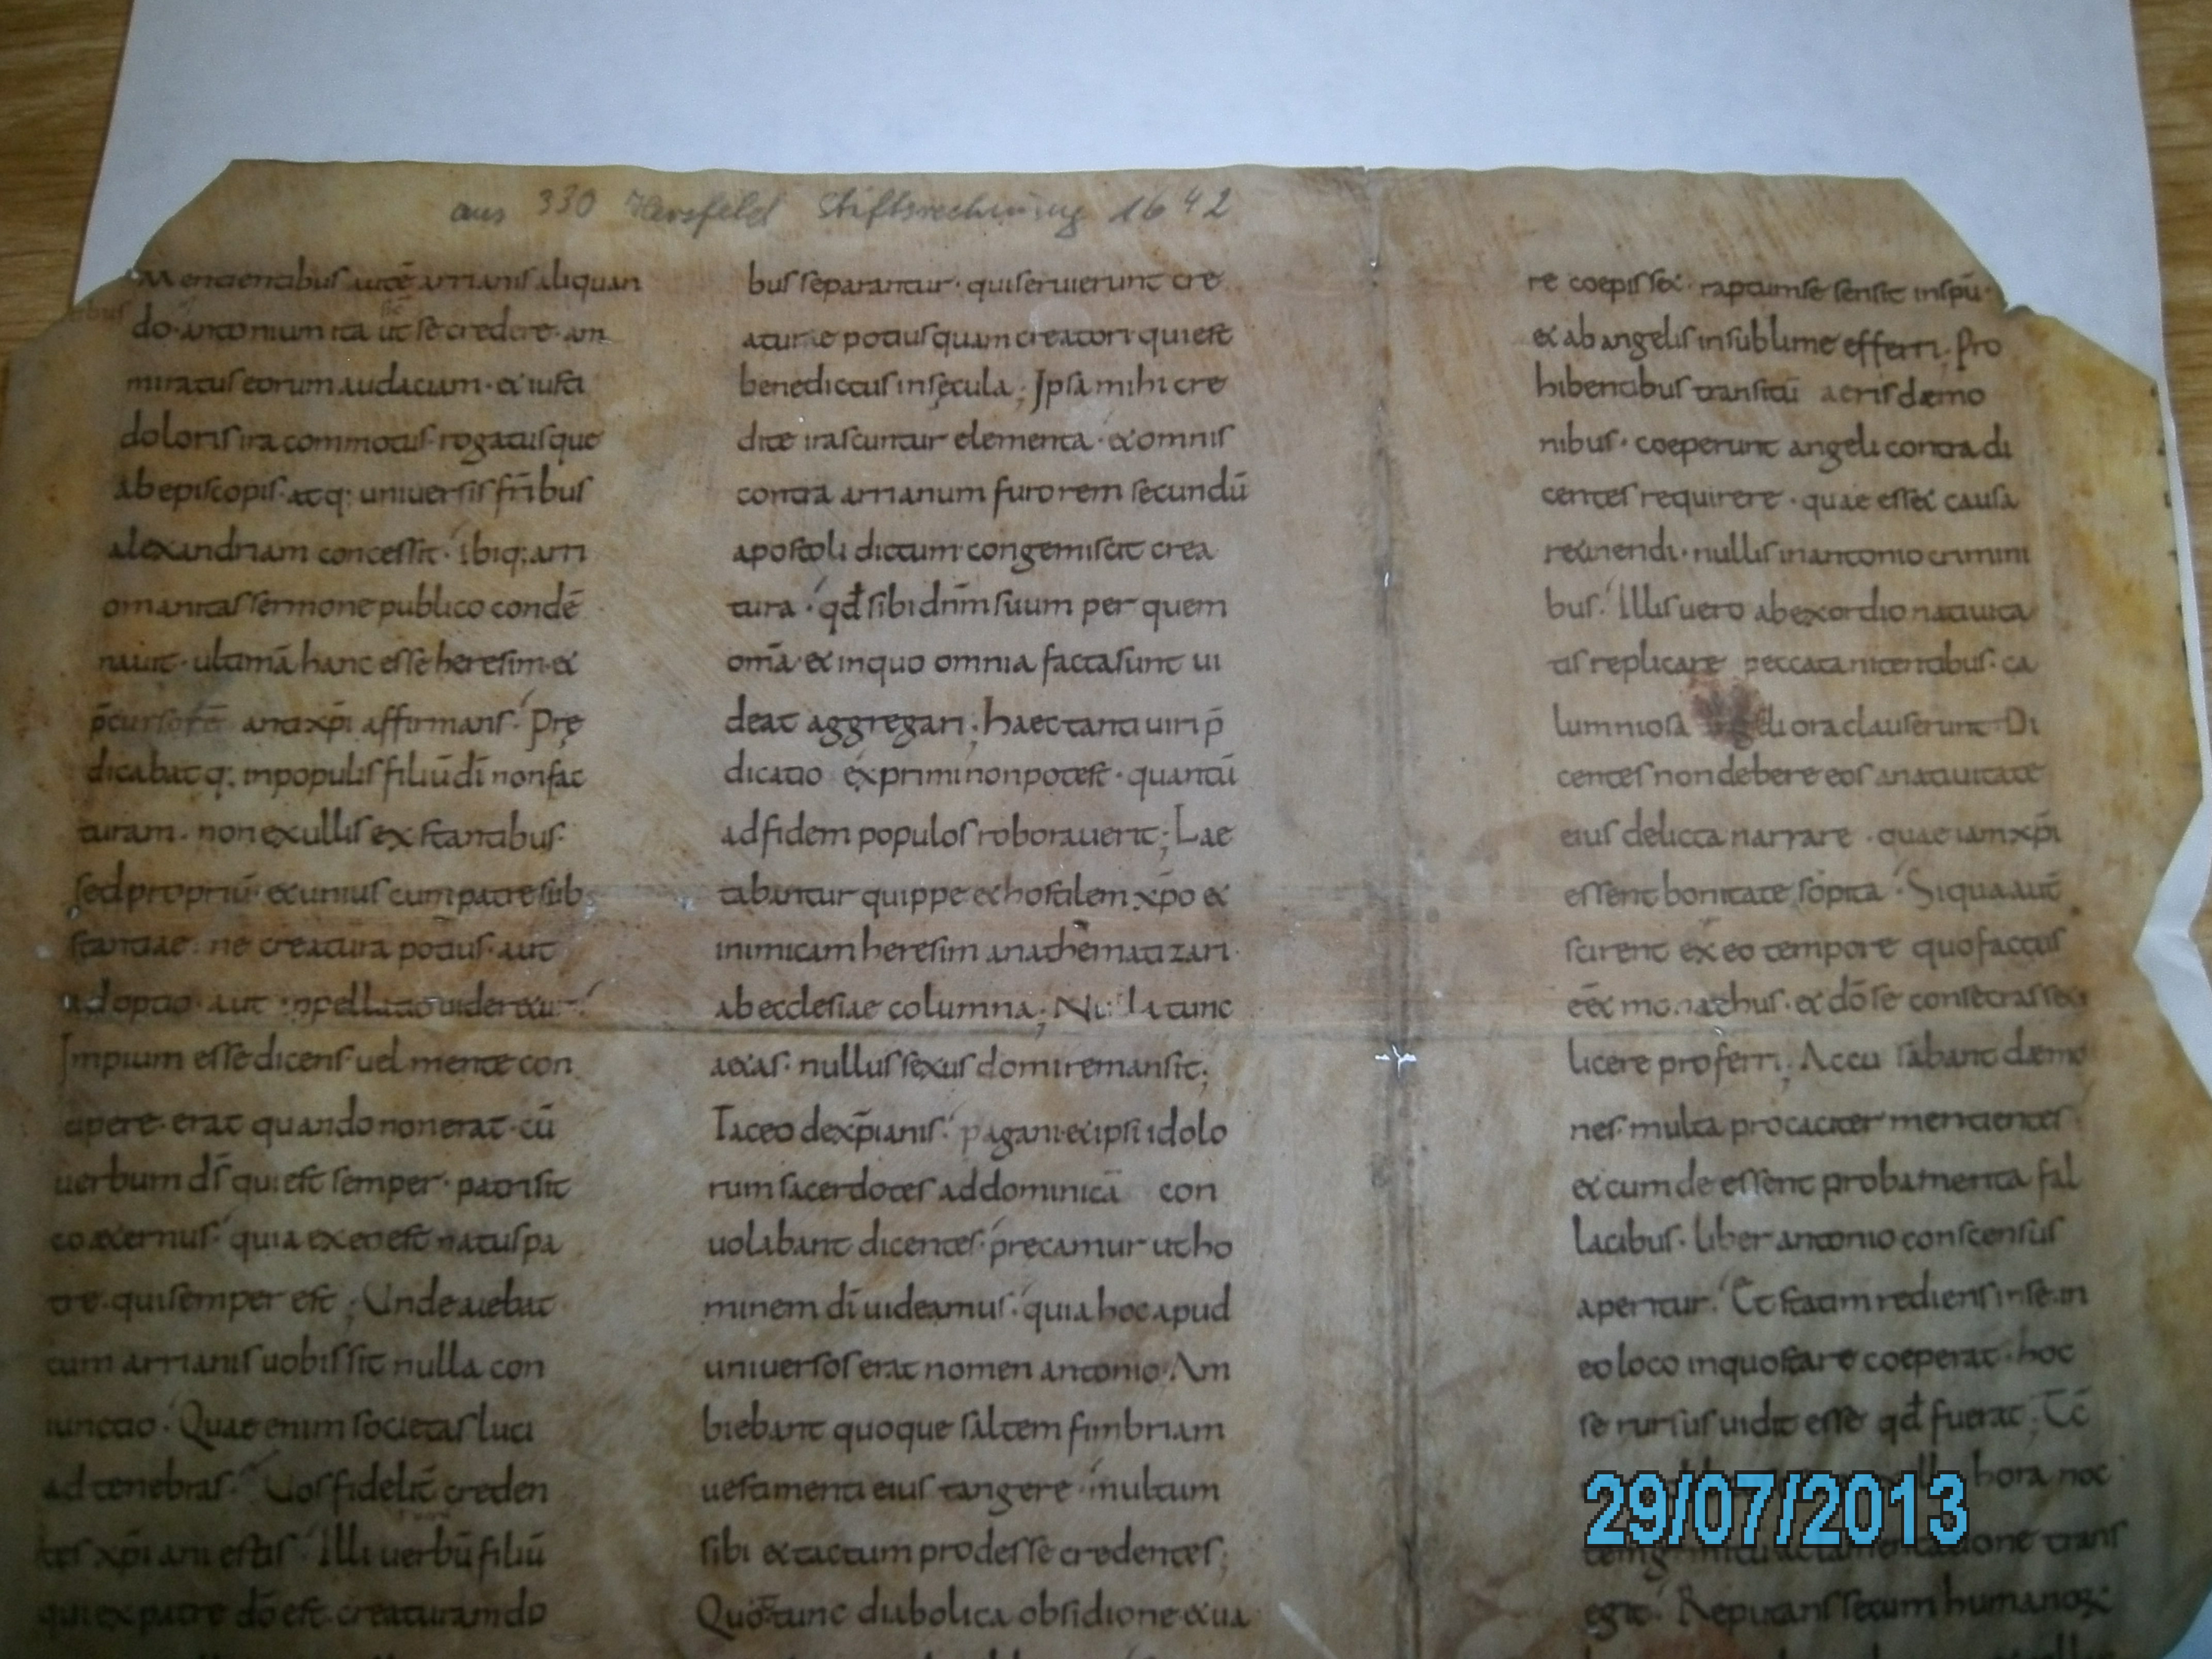 aus 330 Hersfeld Stiftsrechnung 1642
Mentientibus autē arrianis aliquan
do antonium ita ut se credere an
miratus eorum audaciam · et iusti
doloris ira commotus rogatusque
ab episcopis atq; universis fr̄ibus
alexandriam concessit · ibiq; arri
omanitas sermone publico condē
nauit · ultimā hanc esse heresim et
antixp̄i affirmans · Prę
dicabatq; in populis filiū dī non fac
turam · non ex ullis exstantibus ·
sed propriū · et unius cum patre sub
stantiae · ne creatura potius · aut
adoptio · aut appellatio uideretur
Impium esse dicens uel mente con
cipere · erat quando non erat · cū
uerbum dī qui est semper · patri sit
coeternus · quia ex eo est natus pa
tre · qui semper est ; Unde aiebat
cum arrianis uobis sit nulla con
iunctio · Quae enim societas luci
ad tenebras · Uos fideliť creden
tes xp̄iani estis · Illi uerbū filiū
qui ex patre dō est creaturam do
bus separantur · qui seruierunt cre
aturae potius quam creatori qui est
benedictus in sęcula ; Ipsa mihi cre
dite irascuntur elementa · et omnis
contra arrianum furorem secundū
apostoli dictum congemiscit crea
tura · qđ sibi dn̄m suum per quem
om̄a et in quo omnia facta sunt ui
deat aggregari ; haec tanti uiri p̄
dicatio exprimi non potest · quantū
ad fidem populos roborauerit ; Lae
tabantur quippe et hostilem xp̄o et
inimicam heresim anathematizari ·
ab ecclesiae columna ; Nulla tunc
aetas · nullus sexus domi remansit ;
Taceo de xp̄ianis · pagani et ipsi idolo
rum sacerdotes ad dominicā con
uolabant dicentes · precamur ut ho
minem dī uideamus · quia hoc apud
uniuersos erat nomen antonio · Am
biebant quoque saltem fimbriam
uestimenti eius tangere · multum
sibi et tactum prodesse credentes ;
Quot tunc diabolica obsidione et ua
re coepisset · raptum se sensit in sp̄u ·
et ab angelis in sublime efferri ; Pro
hibentibus transitū aeris dæmo
nibus · coeperunt angeli contradi
centes requirere · quae esset causa
retinendi · nullis in antonio crimini
bus · Illis uero ab exordio natiuita
tis replicare peccata nitentibus · ca
lumniosa angeli ora clauserunt · Di
centes non debere eos a natiuitate
eius delicta narrare · quae iam xp̄i
essent bonitate sopita · Siqua aut̄
scirent ex eo tempore quo factus
eēt monachus · et dō se consecrasset
licere proferri ; Accusabant dæmo
nes · multa procaciter mentientes
et cum deessent probamenta fal
lacibus · liber antonio conscensus
aperitur · Et statim rediens in se in
eo loco in quo stare coeperat · hoc
se rursus uidit esse qđ fuerat ; Tc̄
hora noc
trans
egit · Reputans secum humanoꝝ
29/07/2013